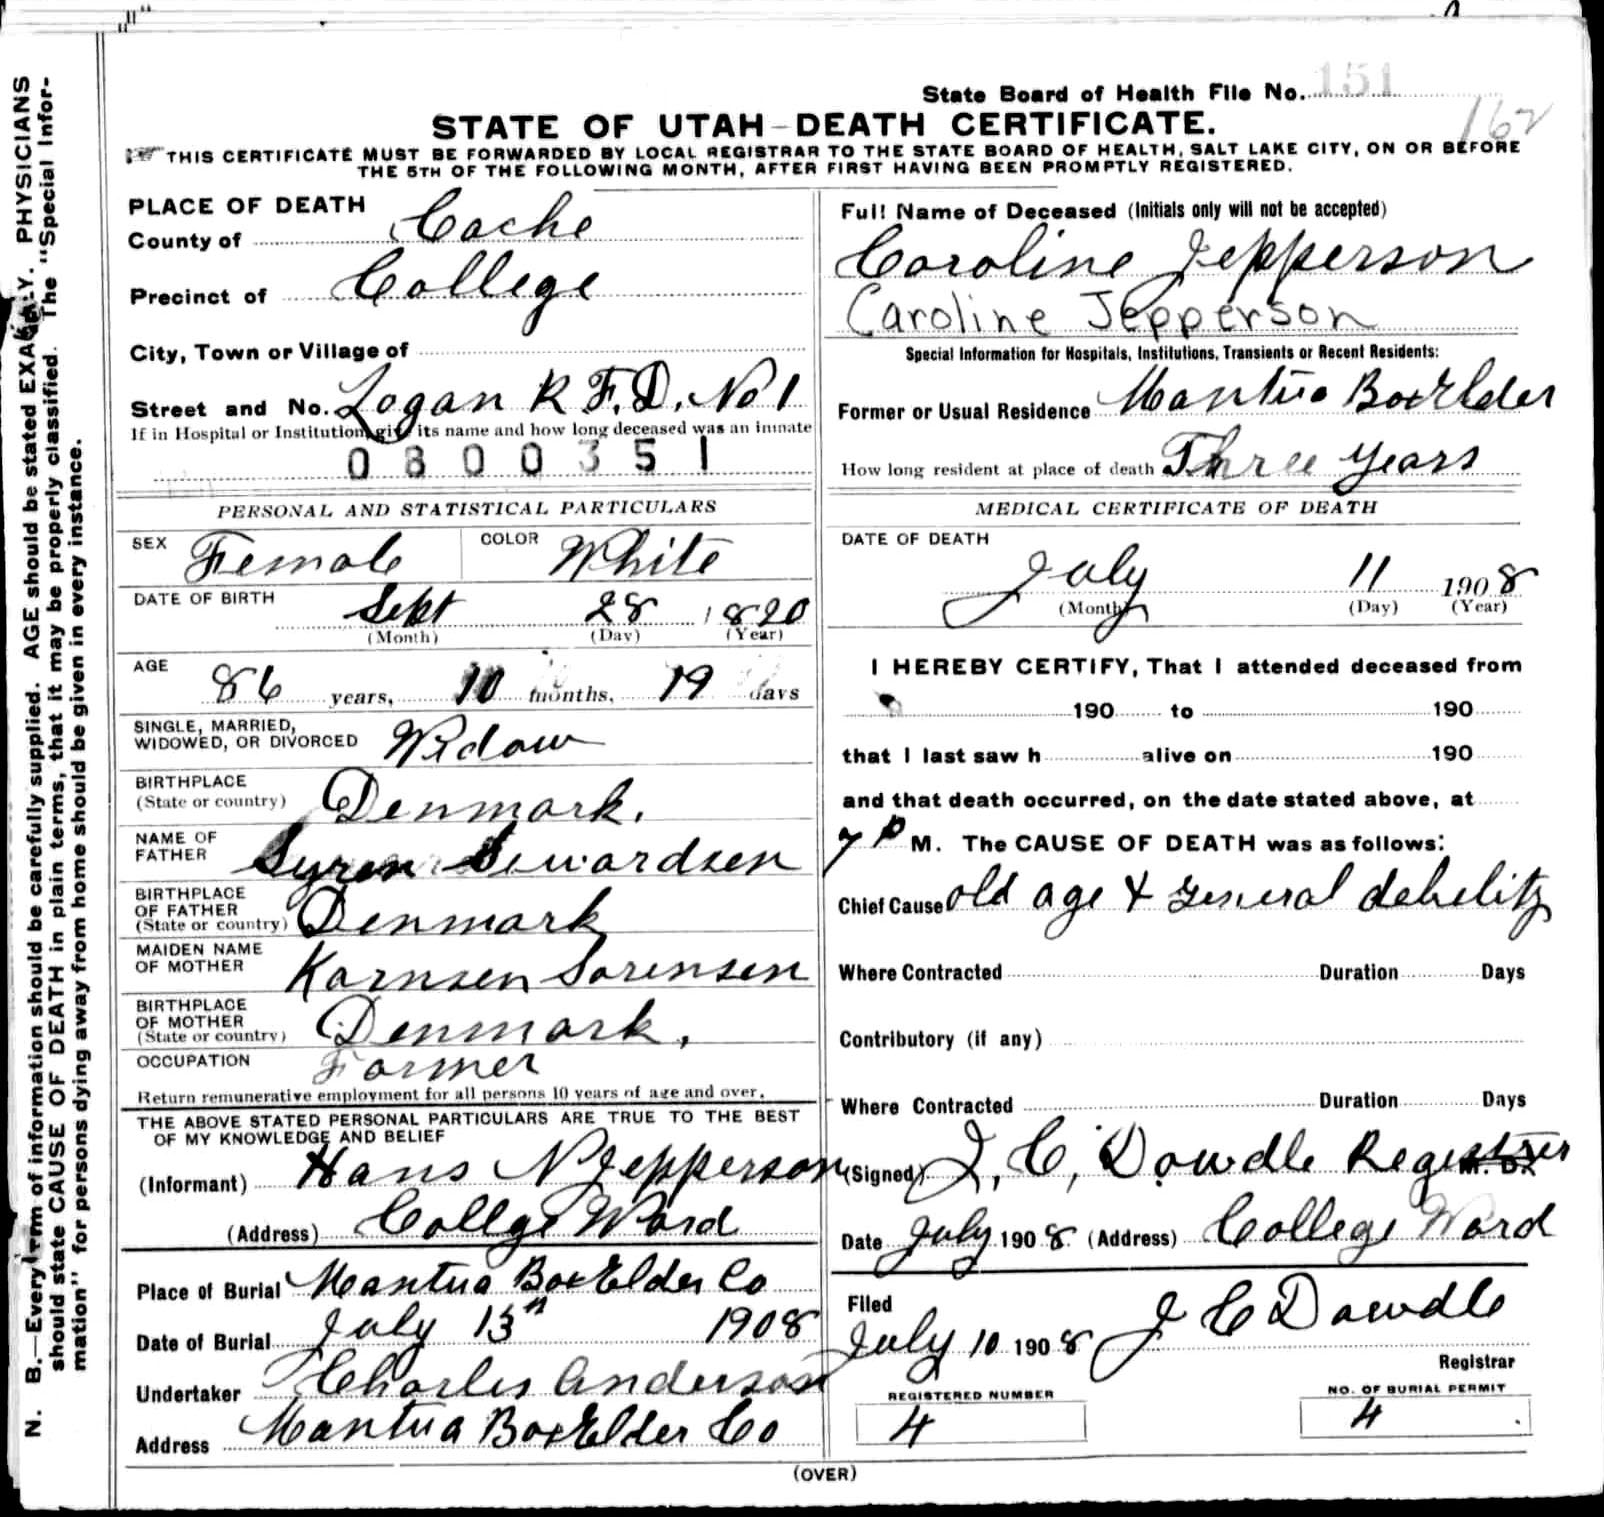 State Board of Health File No. 151
162
STATE OF UTAH—DEATH CERTIFICATE.
THIS CERTIFICATE MUST BE FORWARDED BY LOCAL REGISTRAR TO THE STATE BOARD OF HEALTH, SALT LAKE CITY, ON OR BEFORE
THE 5TH OF THE FOLLOWING MONTH, AFTER FIRST HAVING BEEN PROMPTLY REGISTERED.
N. B.—Every item of information should be carefully supplied. AGE should be stated EXACTLY. PHYSICIANS
should state CAUSE OF DEATH in plain terms, that it may be properly classified. The "Special Infor-
mation" for persons dying away from home should be given in every instance.
PLACE OF DEATH
County of Cache
Precinct of College
City, Town or Village of
Street and No. Logan R F.D. No 1
If in Hospital or Institution, give its name and how long deceased was an inmate
0800351
PERSONAL AND STATISTICAL PARTICULARS
SEX Female COLOR White
DATE OF BIRTH Sept 28 1820
(Month) (Day) (Year)
AGE 86 years, 10 months, 19 days
SINGLE, MARRIED,
WIDOWED, OR DIVORCED Widow
BIRTHPLACE
(State or country) Denmark.
NAME OF
FATHER Syren Sewardsen
BIRTHPLACE
OF FATHER
(State or country) Denmark
MAIDEN NAME
OF MOTHER Karnsen Sorensen
BIRTHPLACE
OF MOTHER
(State or country) Denmark,
OCCUPATION Farmer
Return remunerative employment for all persons 10 years of age and over.
THE ABOVE STATED PERSONAL PARTICULARS ARE TRUE TO THE BEST
OF MY KNOWLEDGE AND BELIEF
(Informant) Hans N Jepperson
(Address) College Ward
Place of Burial Mantua BoxElder Co
Date of Burial July 13th 1908
Undertaker Charles Anderson
Address Mantua BoxElder Co
Full Name of Deceased (Initials only will not be accepted)
Caroline Jepperson
Caroline Jepperson
Special Information for Hospitals, Institutions, Transients or Recent Residents:
Former or Usual Residence Mantua BoxElder
How long resident at place of death Three Years
MEDICAL CERTIFICATE OF DEATH
DATE OF DEATH
July 11 1908
(Month) (Day) (Year)
I HEREBY CERTIFY, That I attended deceased from
190 to 190
that I last saw h alive on 190
and that death occurred, on the date stated above, at
7 P M. The CAUSE OF DEATH was as follows:
Chief Cause old age & General debelity
Where Contracted Duration Days
Contributory (if any)
Where Contracted Duration Days
(Signed) J. C. Dowdle Regestrer M. D.
Date July 1908 (Address) College Ward
Filed
July 10 1908 J C Dowdle
Registrar
REGISTERED NUMBER
4
NO. OF BURIAL PERMIT
4
(OVER)